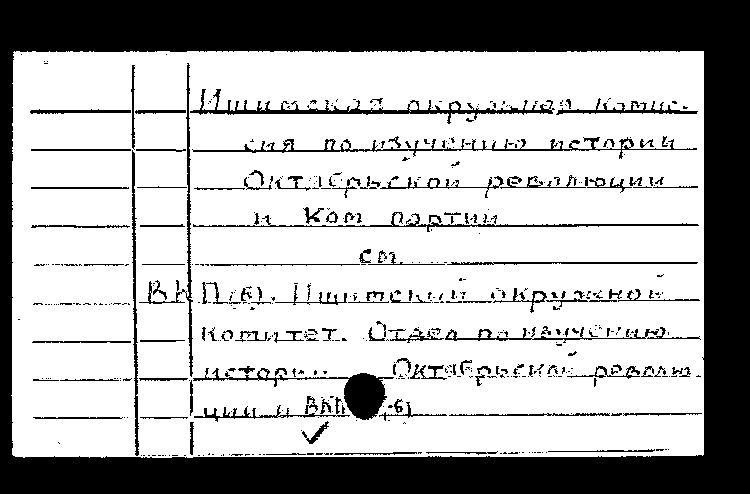 Ишимская окружная комис-
сия по изучению истории
Октябрьской революции
и Ком партии
см.
ВКП(б). Ишимский окружной
комитет. Отдел по изучению
истории Октябрьской револю
ции и ВКП(б)